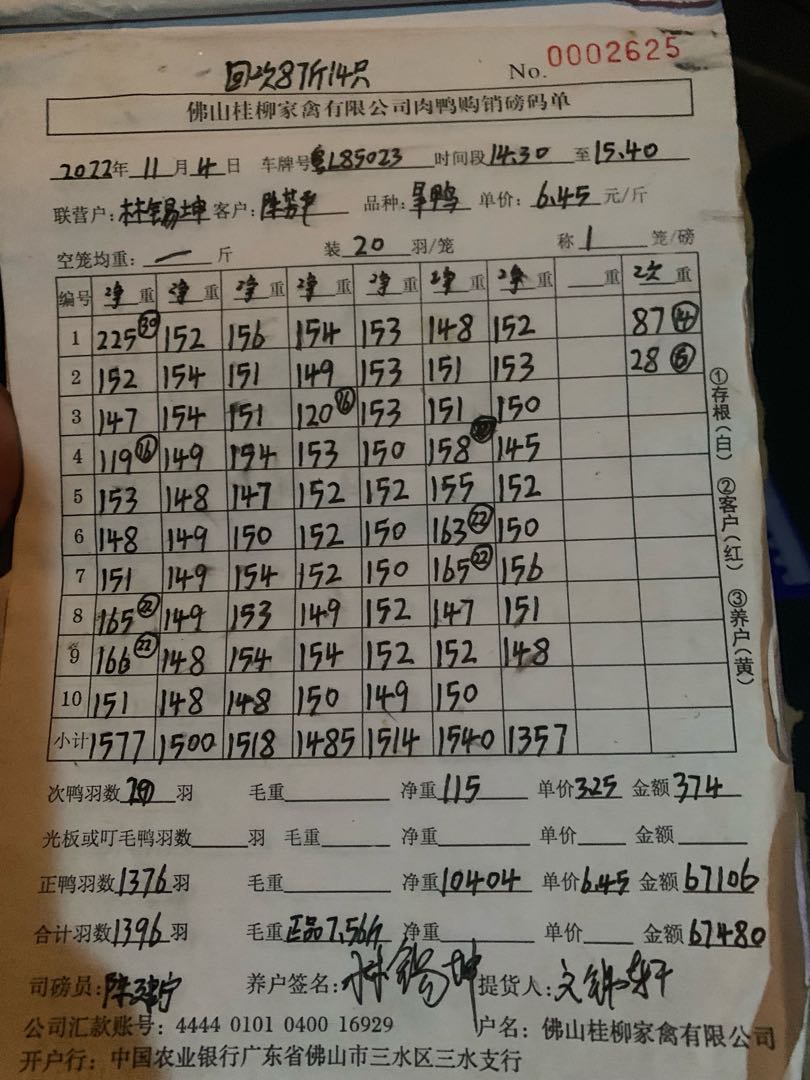 回次87斤14只
No. 0002625
佛山桂柳家禽有限公司肉鸭购销磅码单
2022年 11月 4日 车牌号粤L85023 时间段14:30 至15.40
联营户:林锡坤 客户:陈芳平 品种: 鸭 单价:6.45元/斤
空笼均重:一斤 装20羽/笼 称1笼/磅
编号 净重 净重 净重 净重 净重 净重 净重 重 次重
1 225 152 156 154 153 148 152 87⑭
2 152 154 151 149 153 151 153 28⑥
3 147 154 151 120⑯ 153 151 150
4 119⑯ 149 154 153 150 158 145
5 153 148 147 152 152 155 152
6 148 149 150 152 150 163㉒ 150
7 151 149 154 152 150 165㉒ 156
8 165㉒ 149 153 149 152 147 151
9 166㉒ 148 154 154 152 152 148
10 151 148 148 150 149 150
小计 1577 1500 1518 1485 1514 1540 1357
①存根(白) ②客户(红) ③养户(黄)
次鸭羽数20羽 毛重 净重115 单价3.25 金额374
光板或叮毛鸭羽数 羽 毛重 净重 单价 金额
正鸭羽数1376羽 毛重 净重10404 单价6.45 金额67106
合计羽数1396羽 毛重正品7.56斤 净重 单价 金额67480
司磅员: 养户签名:林锡坤 提货人:
公司汇款账号:4444 0101 0400 16929 户名:佛山桂柳家禽有限公司
开户行:中国农业银行广东省佛山市三水区三水支行